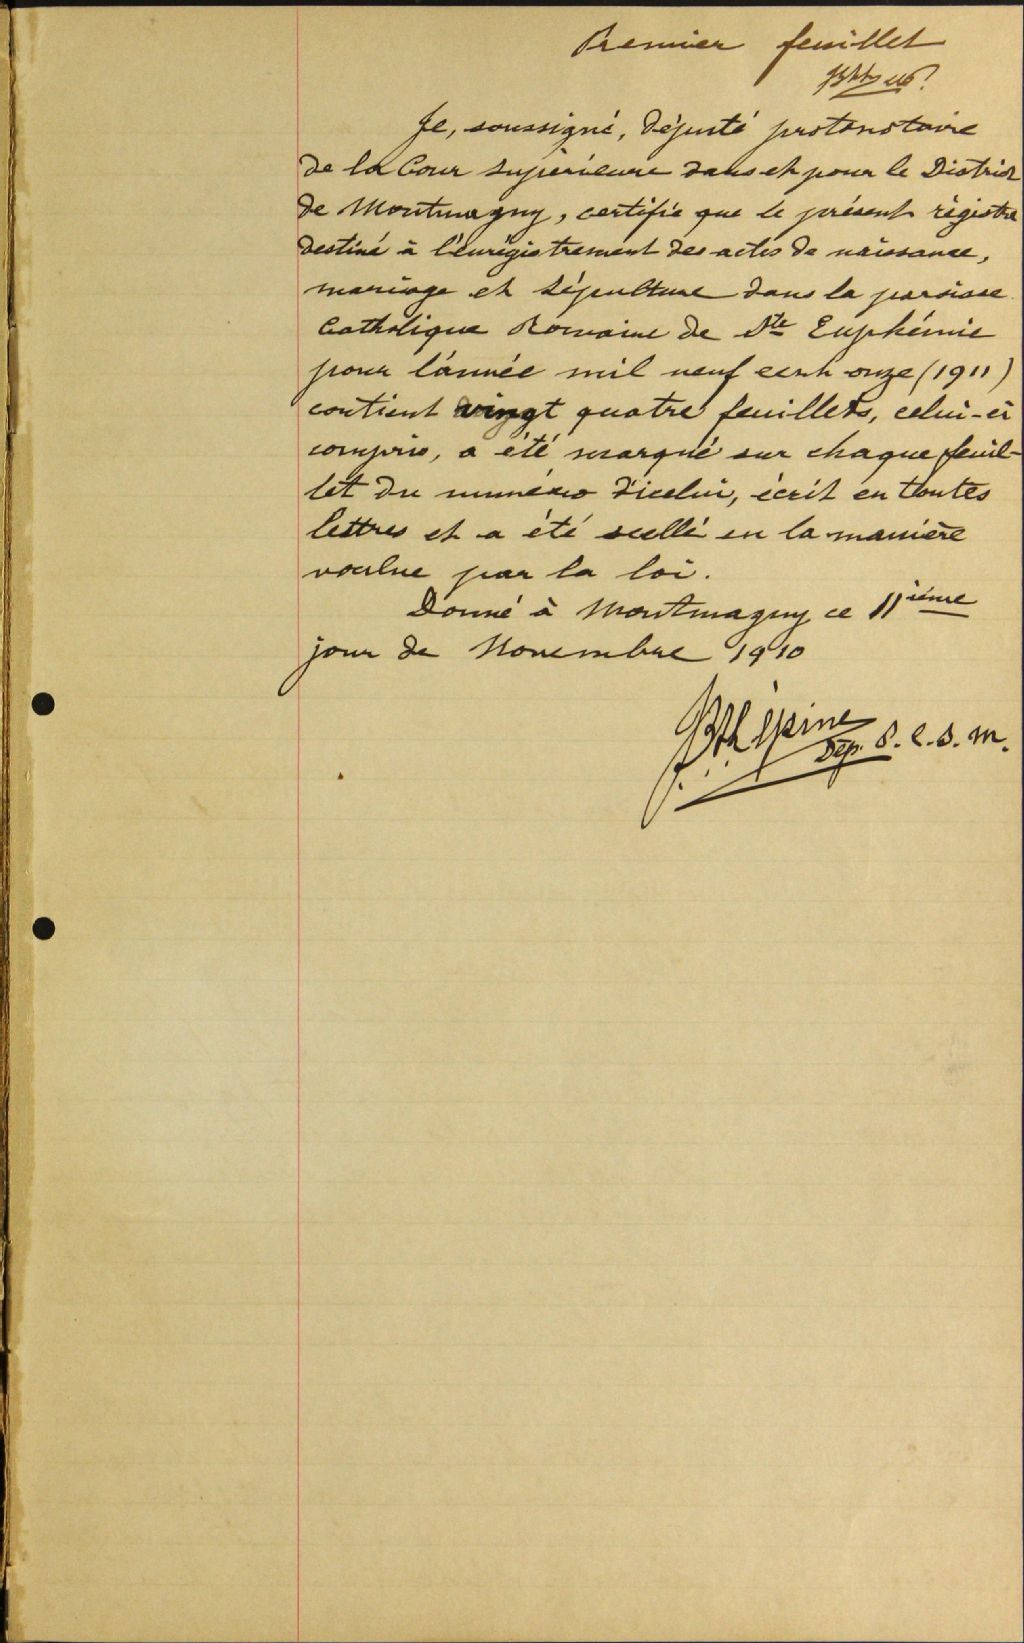 Premier feuillet
Je, soussigné, Député protonotaire
de la Cour Supérieure dans et pour le District
de Montmagny, certifie que le présent régistre
destiné à l'enrégistrement des actes de naissance,
mariage et sépulture dans la paroisse
Catholique Romaine de Ste Euphémie
pour l'année mil neuf cent onze (1911)
contient vingt quatre feuillets, celui-ci
compris, a été marqué sur chaque feuil-
let du numéro d'icelui, écrit en toutes
lettres et a été scellé en la manière
voulue par la loi.
Donné à Montmagny ce 11ième
jour de Novembre 1910
Lépine
Dép. P. C. S. M.